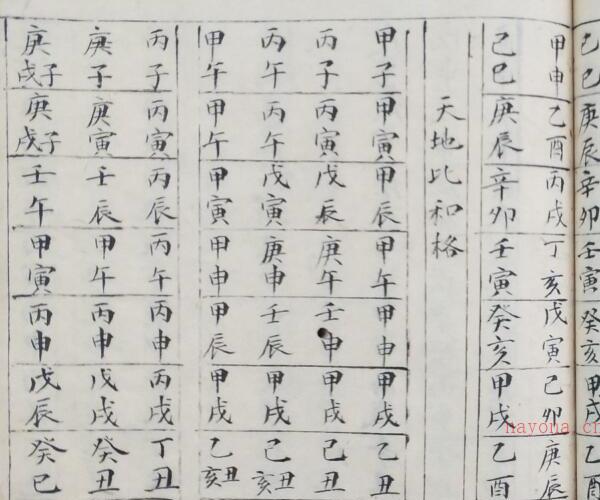 己巳 庚辰 辛卯 壬寅 癸亥 甲戌 乙酉
甲申 乙酉 丙戌 丁亥 戊寅 己卯 庚辰
己巳 庚辰 辛卯 壬寅 癸亥 甲戌 乙酉
天地比和格
甲子 甲寅 甲辰 甲午 甲申 甲戌 乙丑
丙子 丙寅 戊辰 庚午 壬申 甲戌 己丑
丙午 丙午 戊寅 庚申 壬辰 甲戌 己亥丑
甲午 甲午 甲寅 甲申 甲辰 甲戌 乙亥丑
丙子 丙寅 丙辰 丙午 丙申 丙戌 丁丑
庚子 庚寅 壬辰 甲午 丙申 戊戌 癸丑
庚戌子 庚戌子 壬午 甲寅 丙申 戊辰 癸巳
nayona.cn